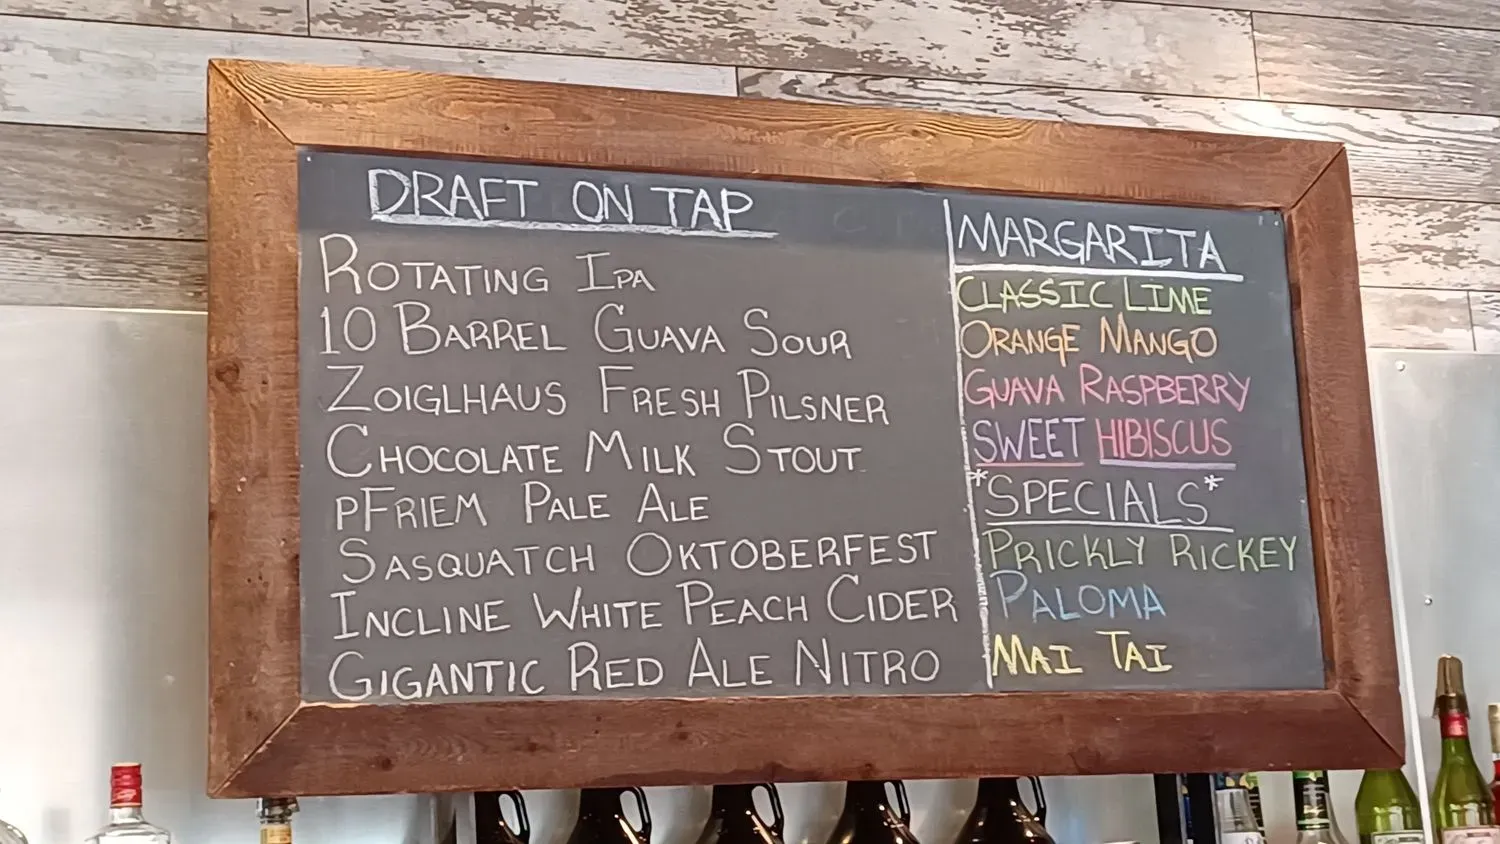 DRAFT ON TAP
ROTATING IPA
10 BARREL GUAVA SOUR
ZOIGLHAUS FRESH PILSNER
CHOCOLATE MILK STOUT
PFRIEM PALE ALE
SASQUATCH OKTOBERFEST
INCLINE WHITE PEACH CIDER
GIGANTIC RED ALE NITRO
MARGARITA
CLASSIC LIME
ORANGE MANGO
GUAVA RASPBERRY
SWEET HIBISCUS
*SPECIALS*
PRICKLY RICKEY
PALOMA
MAI TAI